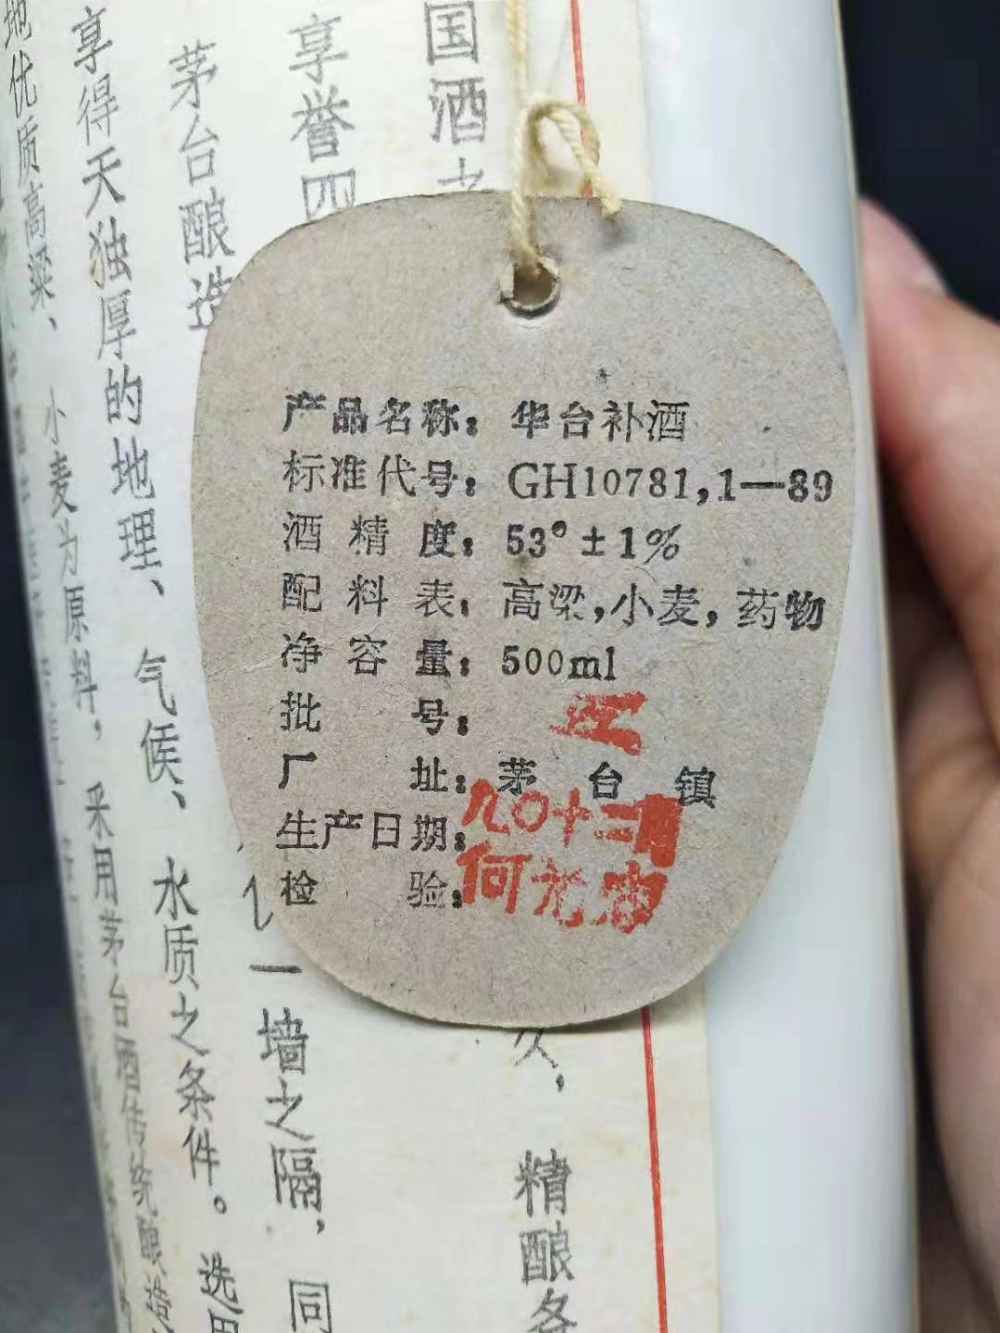 国酒
享誉四
茅台酿造
享得天独厚的地理、气候、水质之条件。选用
地优质高粱、小麦为原料，采用茅台酒传统酿造
一墙之隔，同
久，精酿各
产品名称：华台补酒
标准代号：GH10781,1—89
酒精度：53°±1%
配料表：高梁,小麦,药物
净容量：500ml
批号：
厂址：茅台镇
生产日期：九〇十二
检验：何元